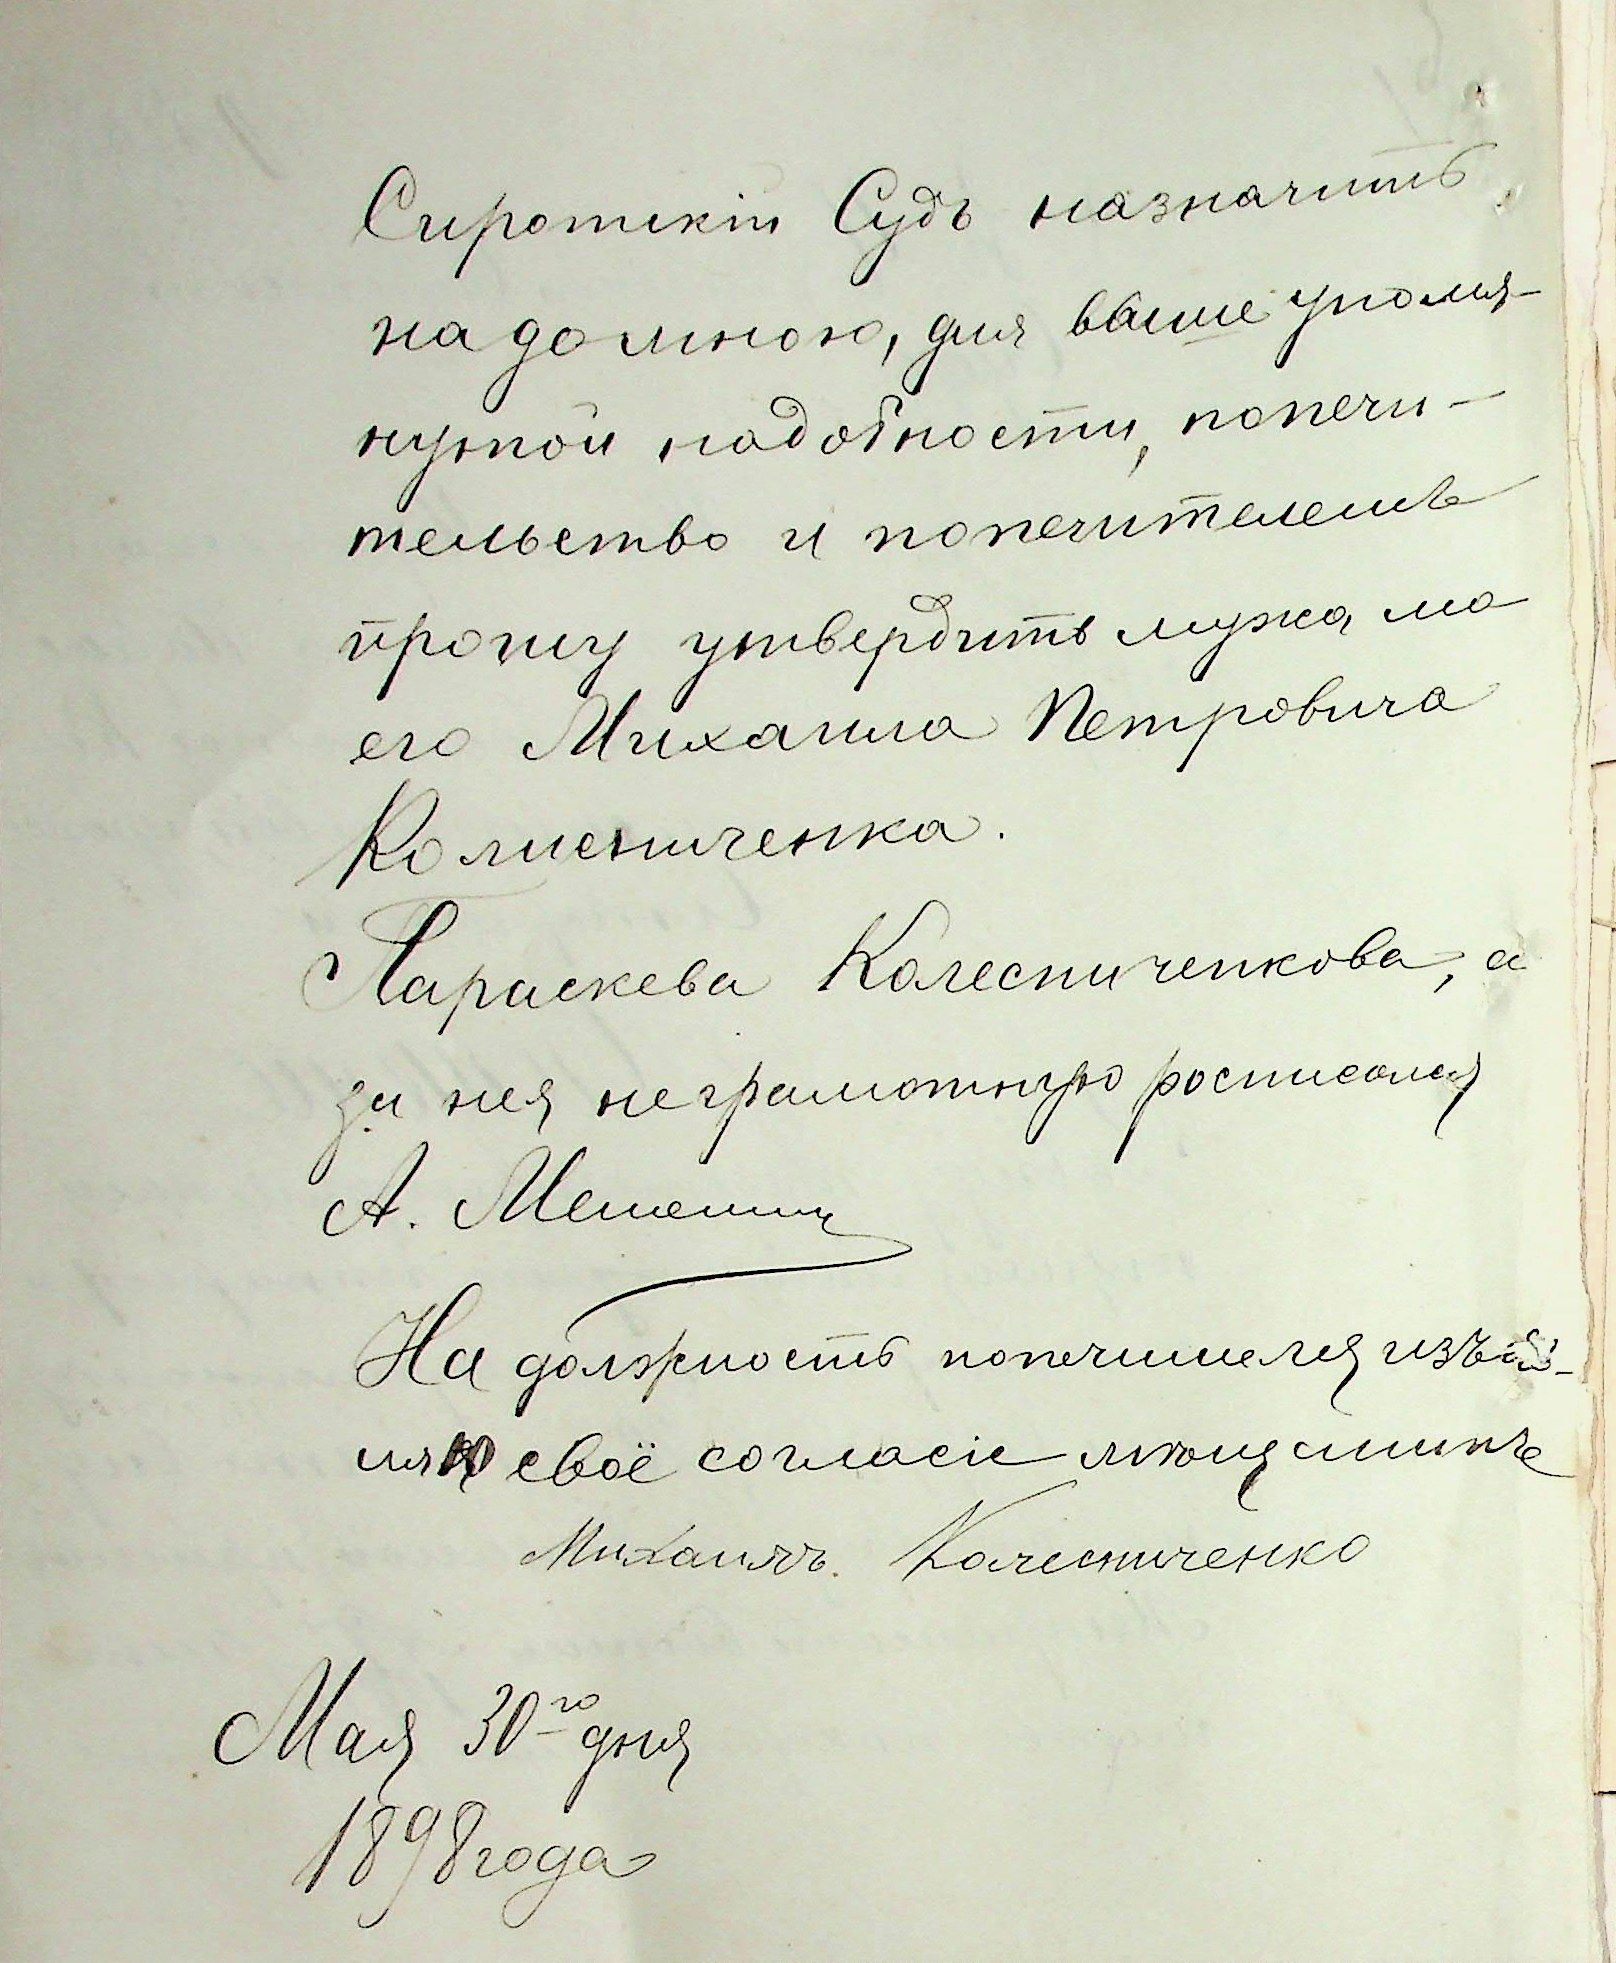 Сиротскій Судъ назначить
надомною, для выше упомя-
нутой надобности, попечи-
тельство и попечителемъ
прошу утвердить мужа мо
его Михаила Петровича
Колисниченка.
Параскева Колесниченкова, а
за нея неграмотную росписался
А.
На должность попечителя изъяв-
ляю своё согласіе мѣщанинъ
Михаилъ. Колесниченко
Мая 30го дня
1898 года